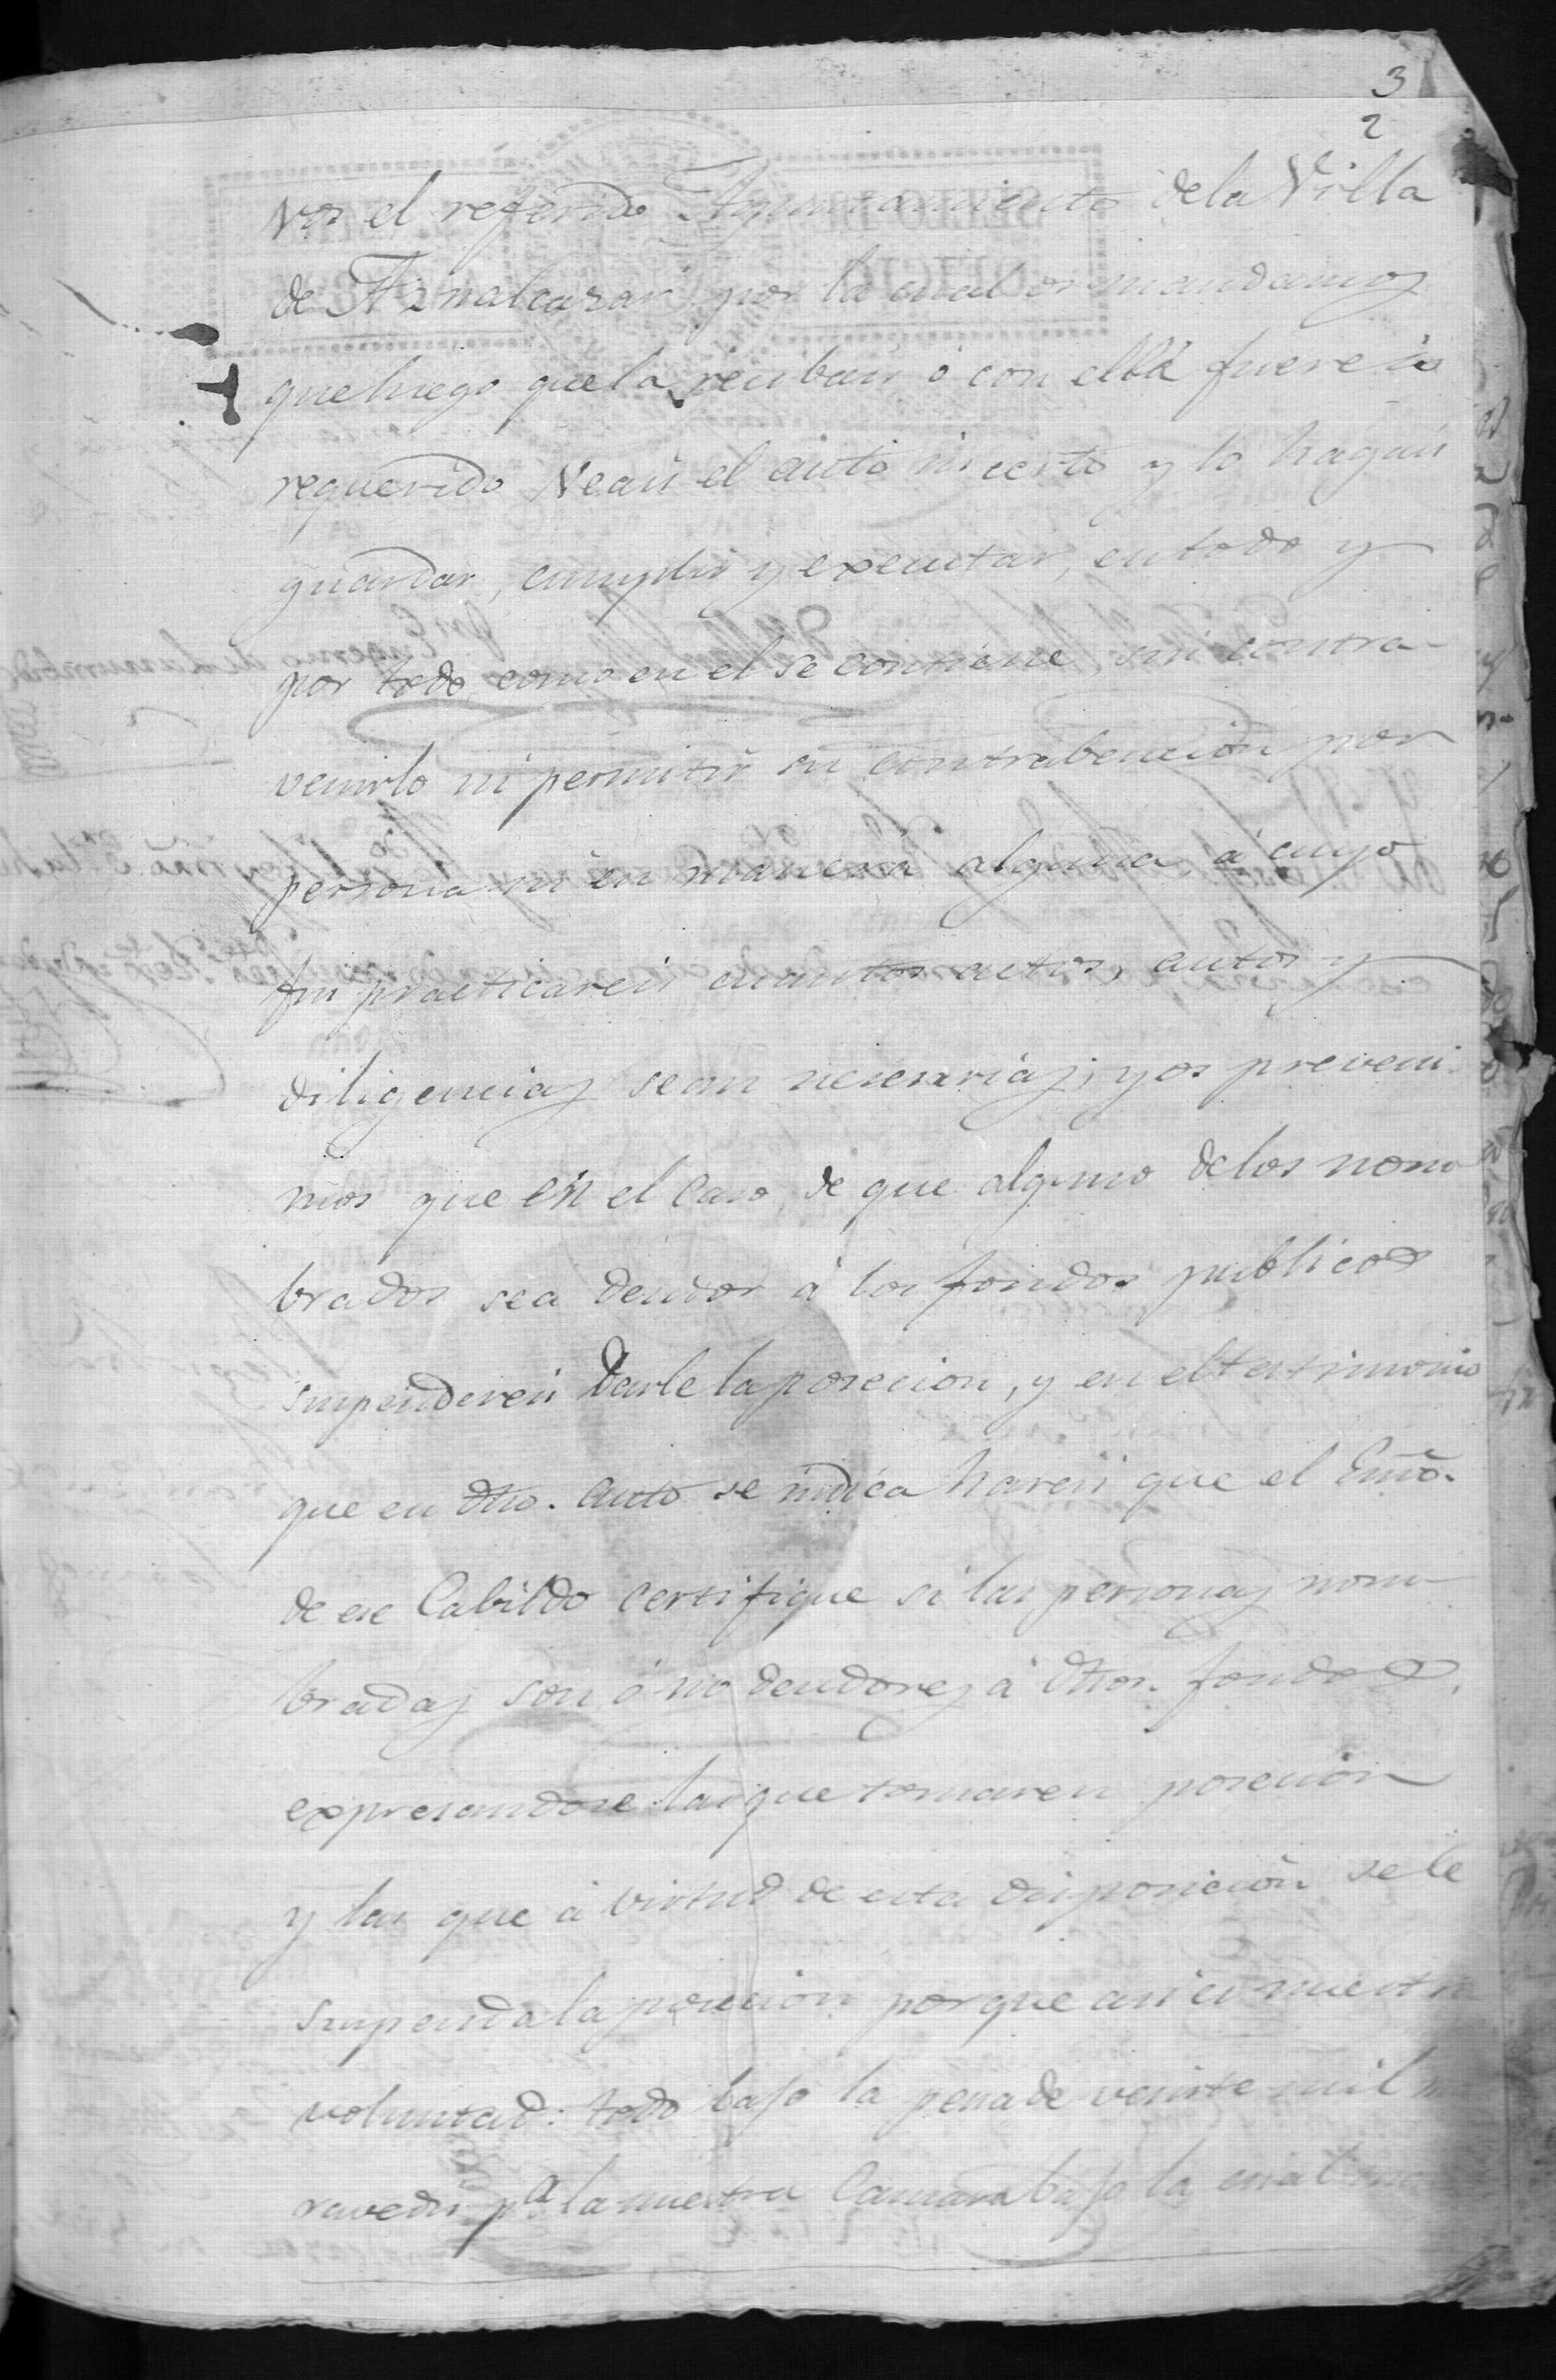 3
2
Vos el referido Ayuntamiento dela Villa
de Aznalcazar por la cual os mandamos
que luego que la recibais ó con ella fuereis
requerido Veais el auto incerto y lo hagais
guardar, cumplir y executar, en todo y
por todo como en el se contiene sin contra-
venirlo ni permitir su contrabencion por
persona ni en manera alguna, á cuyo
fin practicareis cuantos autos, autos y
diligencias sean necesarias, y os preveni-
mos que en el caso de que alguno delos nom
brados sea deudor á los fondos publicos
suspendereis darle la posecion, y en el testimonio
que en dho. auto se indica hareis que el Esno.
de ese Cabildo certifique si las personas nom-
bradas son ó no deudores á dhos. fondos,
expresandose las que tomaren posecion
y las que á virtud de esta disposicion se le
suspenda la posecion porque asi es nuestra
voluntad: todo bajo la pena de veinte mil m
ravedis pa. la nuestra Camara bajo la cual